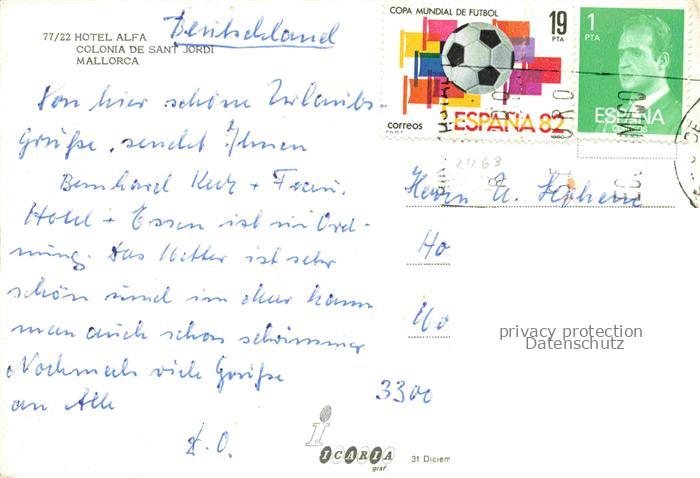 77/22 HOTEL ALFA
COLONIA DE SANT JORDI
MALLORCA
Deutschland
COPA MUNDIAL DE FUTBOL
19
PTA
correos
F.N.M.T.
ESPAÑA 82
1980
1
PTA
ESPAÑA
CORREOS
Von hier schöne Urlaubs-
Grüße, sendet Ihnen
Bernhard + Frau.
Hotel + Essen ist in Ord-
nung. Das Wetter ist sehr
schön und im Meer kann
man auch schon schwimmen
Nochmals viele Grüße
an Alle
D. O.
2463
Herrn
Ho
Wo
3300
privacy protection
Datenschutz
i
ICARIA
graf
31 Diciem